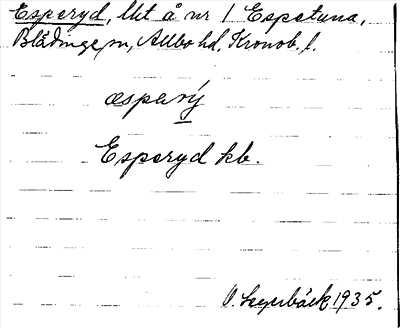 Esperyd, lht å nr 1 Espetuna,
Blädinge sn, Allbo hd, Kronob. l.
æsperý
Esperyd kb.
O. Segerbäck 1935.